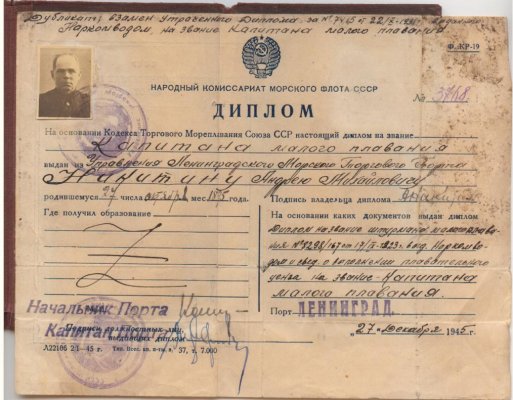 Дубликат, взамен утраченного Диплома за № 7465 от 22/II
Наркомводом, на звание Капитана малого плавания
Ф. КР-19
НАРОДНЫЙ КОМИССАРИАТ МОРСКОГО ФЛОТА СССР
ДИПЛОМ
№ 3768
На основании Кодекса Торгового Мореплавания Союза ССР настоящий диплом на звание
Капитана малого плавания
выдан из Управления Ленинградского Морского Торгового Порта
Никитину Андрею Михайловичу
родившемуся 27 числа октября мес. года.
Где получил образование
Подпись владельца диплома
На основании каких документов выдан диплом
Диплом на звание штурмана малого плава
ния № 5298/167 от 17/II 1923 г. выд. Наркомво
дом и свед. о выполнении плавательного
ценза на звание Капитана
малого плавания.
Начальник Порта
Капитан Порта
Подписи должностных лиц,
выдавших диплом
Порт ЛЕНИНГРАД.
"27" Декабря 1945 г.
Л22106 2/I—45 г. Тип. Всес. кн. п-ты, з. 37, т. 7.000